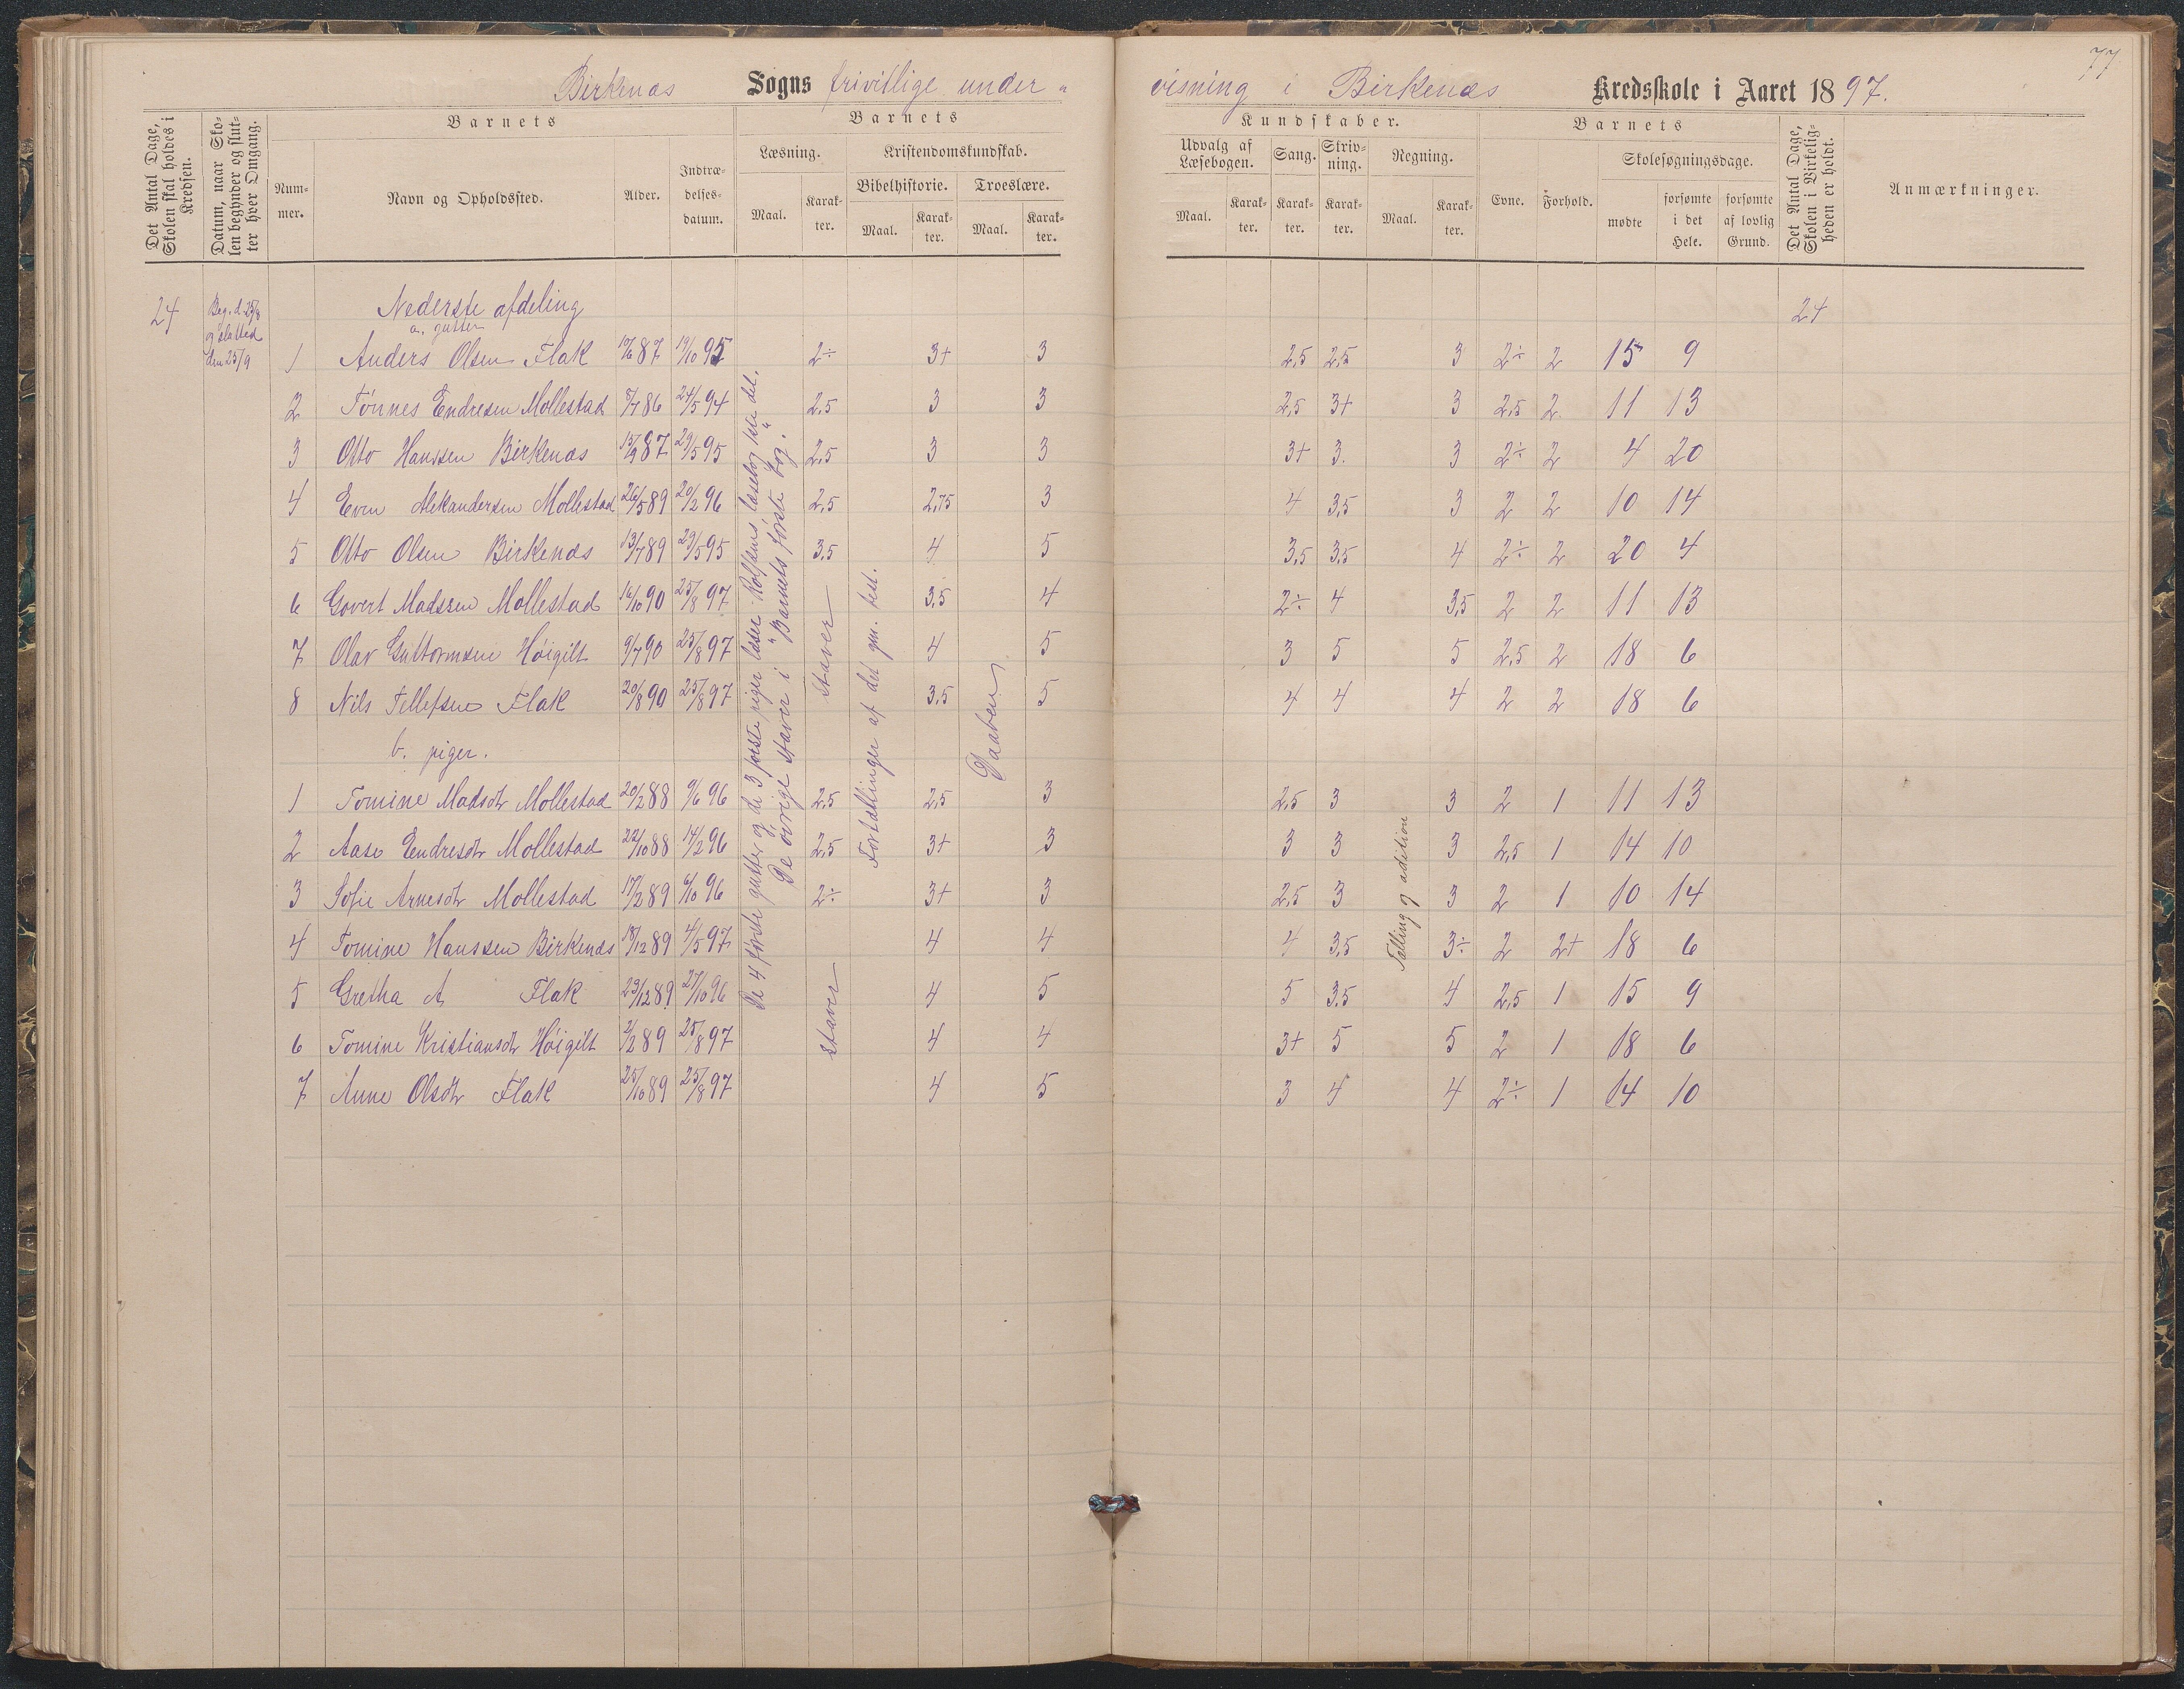 77
Birkenæs Sogns frivillige under„
visning i Birkenæs Kredsskole i Aaret 1897.
Det Antal Dage, Skolen skal holdes i Kredsen.
Datum, naar Skolen begynder og slutter hver Omgang.
Barnets
Nummer.
Navn og Opholdssted.
Alder.
Indtrædelsesdatum.
Barnets
Læsning.
Maal.
Karakter.
Kristendomskundskab.
Bibelhistorie.
Maal.
Karakter.
Troeslære.
Maal.
Karakter.
Kundskaber.
Udvalg af Læsebogen.
Maal.
Karakter.
Sang.
Karakter.
Skrivning.
Karakter.
Regning.
Maal.
Karakter.
Barnets
Evne.
Forhold.
Skolesøgningsdage.
mødte
forsømte i det Hele.
forsømte af lovlig Grund.
Det Antal Dage, Skolen i Virkeligheden er holdt.
Anmærkninger.
24 Beg. d. 25/8 og slutted den 25/9
Nederste afdeling 24
a. gutter
1 Anders Olsen Flak 87 19/10 95 2÷ 3+ 3 2,5 2,5 3 2÷ 2 15 9
2 Tønnes Endresen Mollestad 86 24/5 94 2,5 3 3 2,5 3+ 3 2,5 2 11 13
3 Otto Hanssen Birkenæs 15/9 87 29/5 95 2,5 3 3 3+ 3. 3 2÷ 2 4 20
4 Even Aleksandersen Mollestad 26/5 89 20/2 96 2,5 2,75 3 4 3,5 3 2 2 10 14
5 Otto Olsen Birkenæs 13/7 89 29/5 95 3,5 4 5 3,5 3,5 4 2÷ 2 20 4
6 Govert Madssen Mollestad 16/10 90 25/8 97 3,5 4 2÷ 4 3,5 2 2 11 13
7 Olav Guttormsen Høigilt 9/7 90 25/8 97 4 5 3 5 5 2,5 2 18 6
8 Nils Tellefsen Flak 20/8 90 25/8 97 3,5 5 4 4 4 2 2 18 6
b. piger.
1 Tomine Madsdtr Mollestad 20/2 88 9/6 96 2,5 2,5 3 2,5 3 3 2 1 11 13
2 Aase Endresdtr Mollestad 22/10 88 14/2 96 2,5 3+ 3 3 3 3 2,5 1 14 10
3 Sofie Arnesdtr Mollestad 17/2 89 6/10 96 2÷ 3+ 3 2,5 3 3 2 1 10 14
4 Tomine Hanssen Birkenæs 18/12 89 4/5 97 4 4 4 3,5 3÷ 2 2+ 18 6
5 Gretha A Flak 23/12 89 27/10 96 4 5 5 3,5 4 2,5 1 15 9
6 Tomine Kristiansdtr Høigilt 2/2 89 25/8 97 4 4 3+ 5 5 2 1 18 6
7 Anne Olsdtr Flak 25/10 89 25/8 97 4 5 3 4 4 2÷ 1 14 10
De 4 første gutter og de 3 første piger læser Rolfsens læsebog 1ste del.
De øvrige staver i "Barnets første bog."
staver
staver
Fortællinger af det gm. test.
Daaben
Tælling og adition